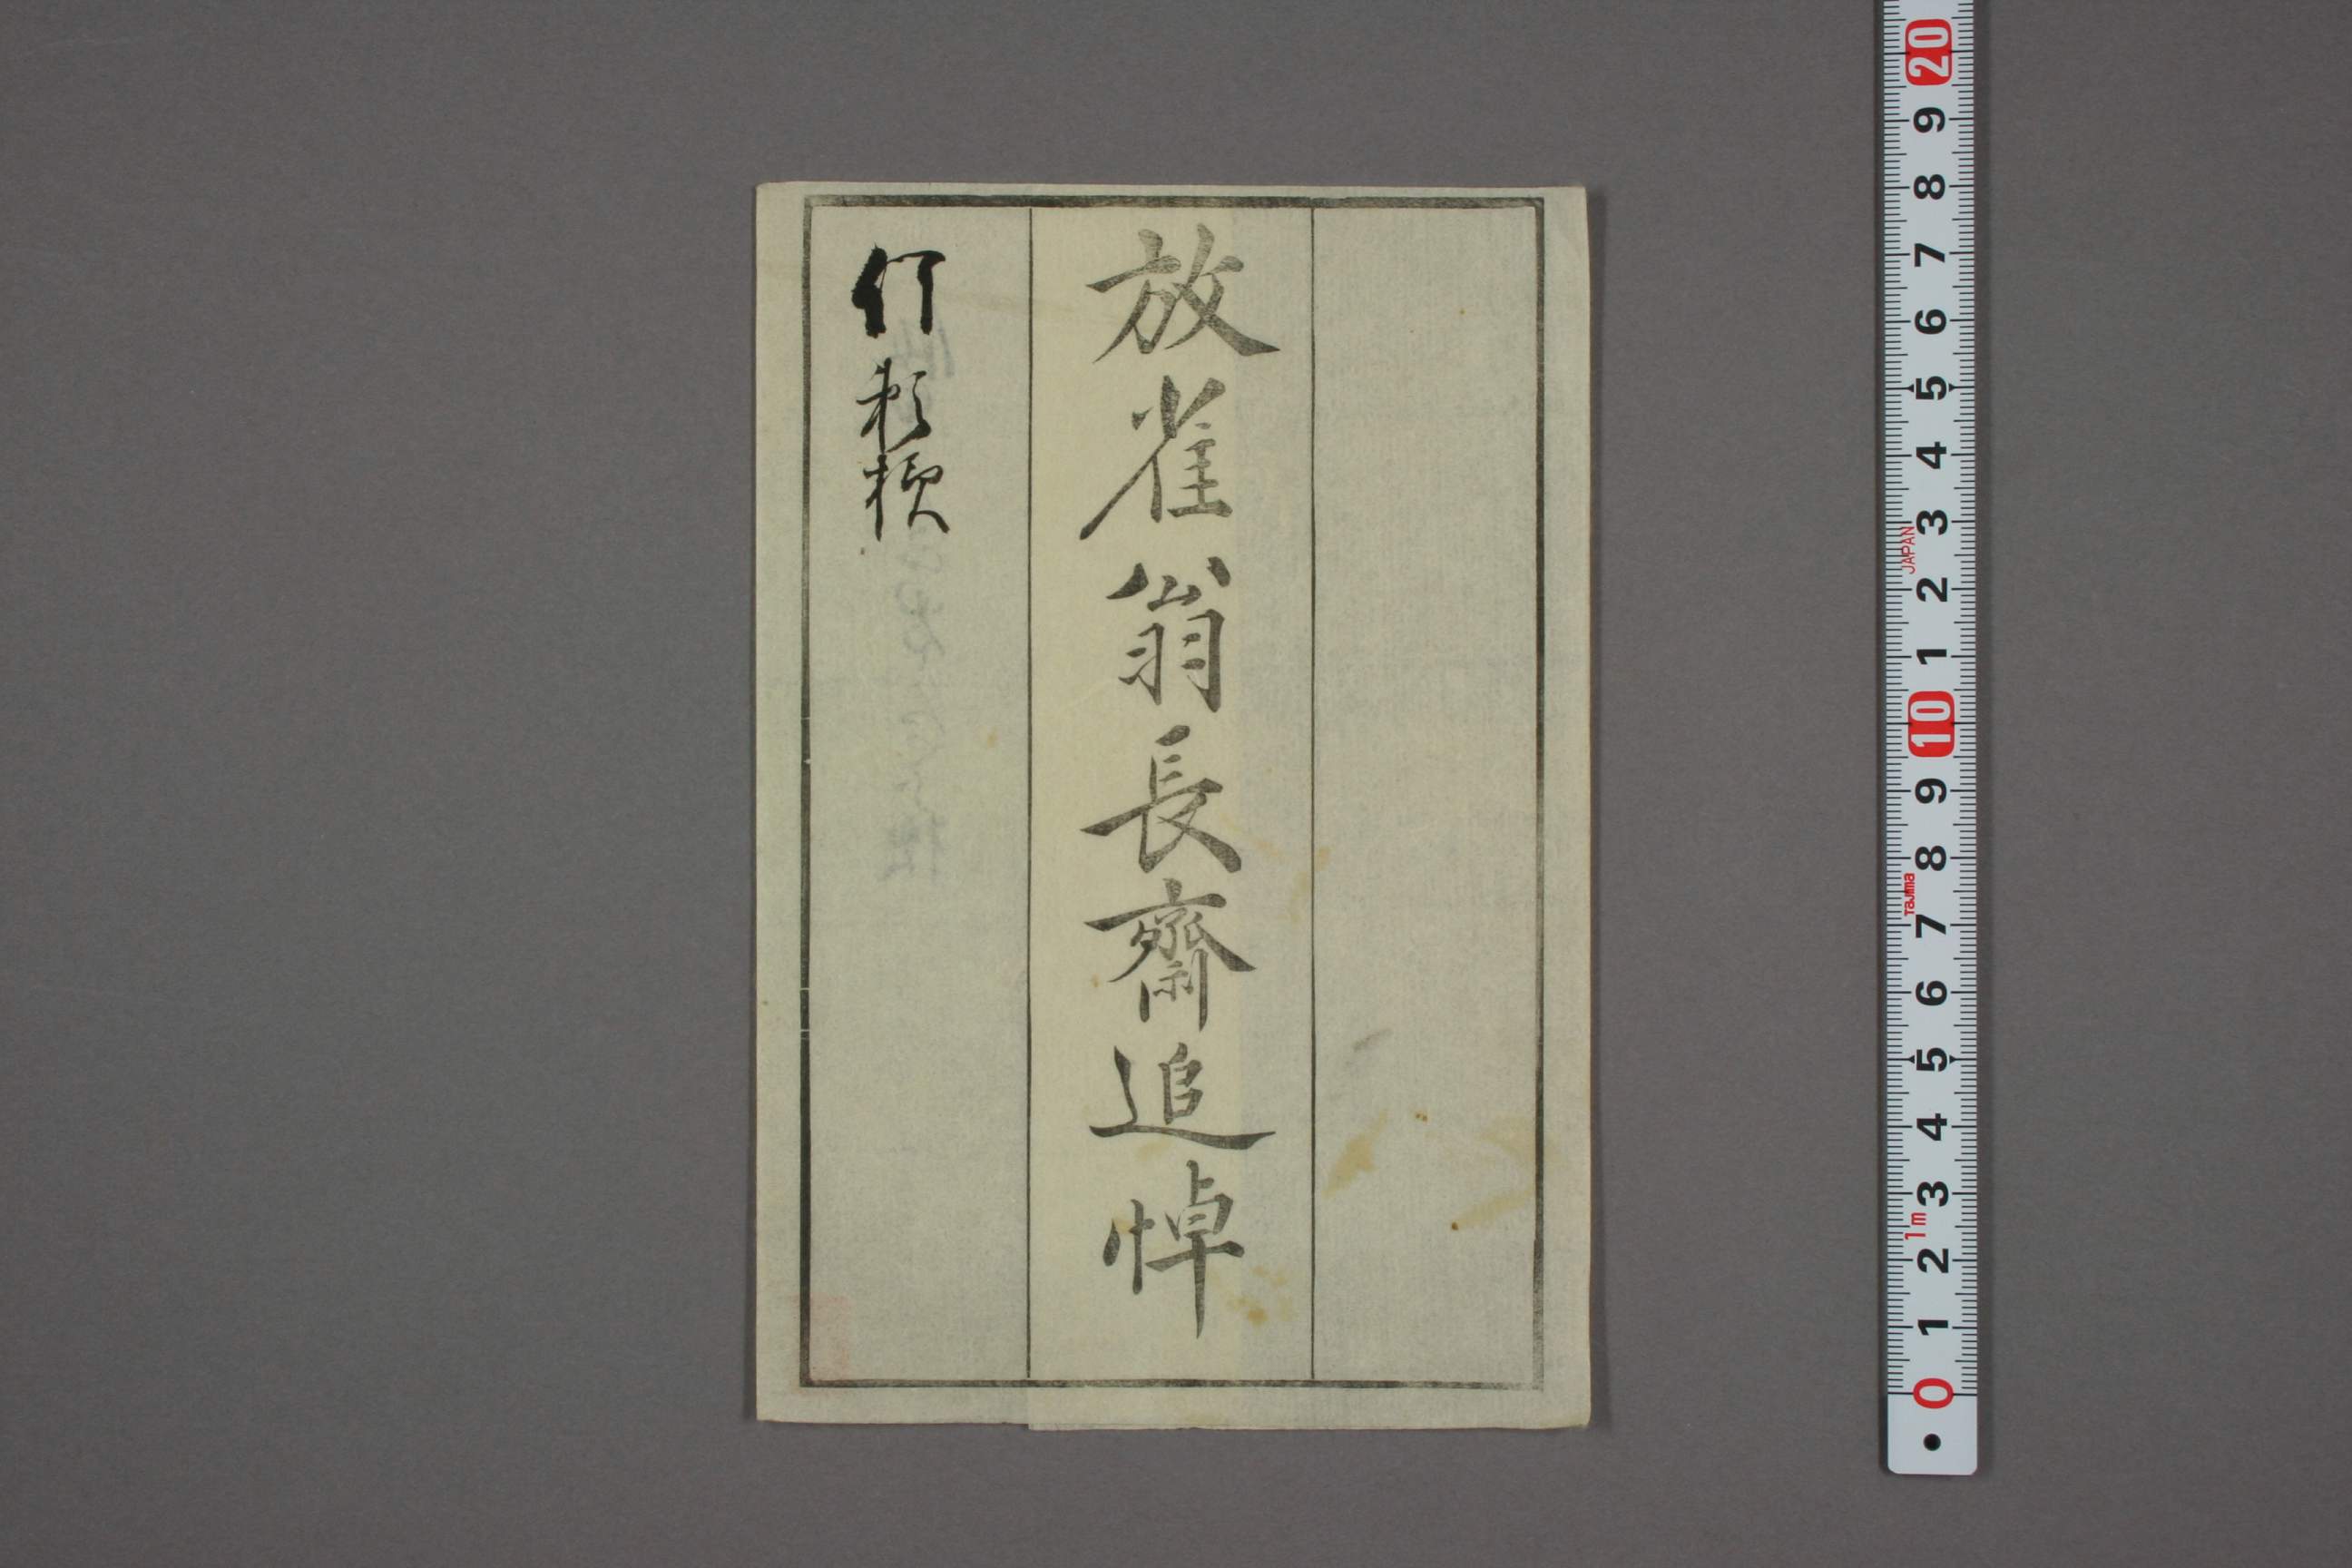 放雀翁長齋追悼
20
9
8
7
6
5
4
3
2
1
10
9
8
7
6
5
4
3
2
1
0
JAPAN
Tajima
1m